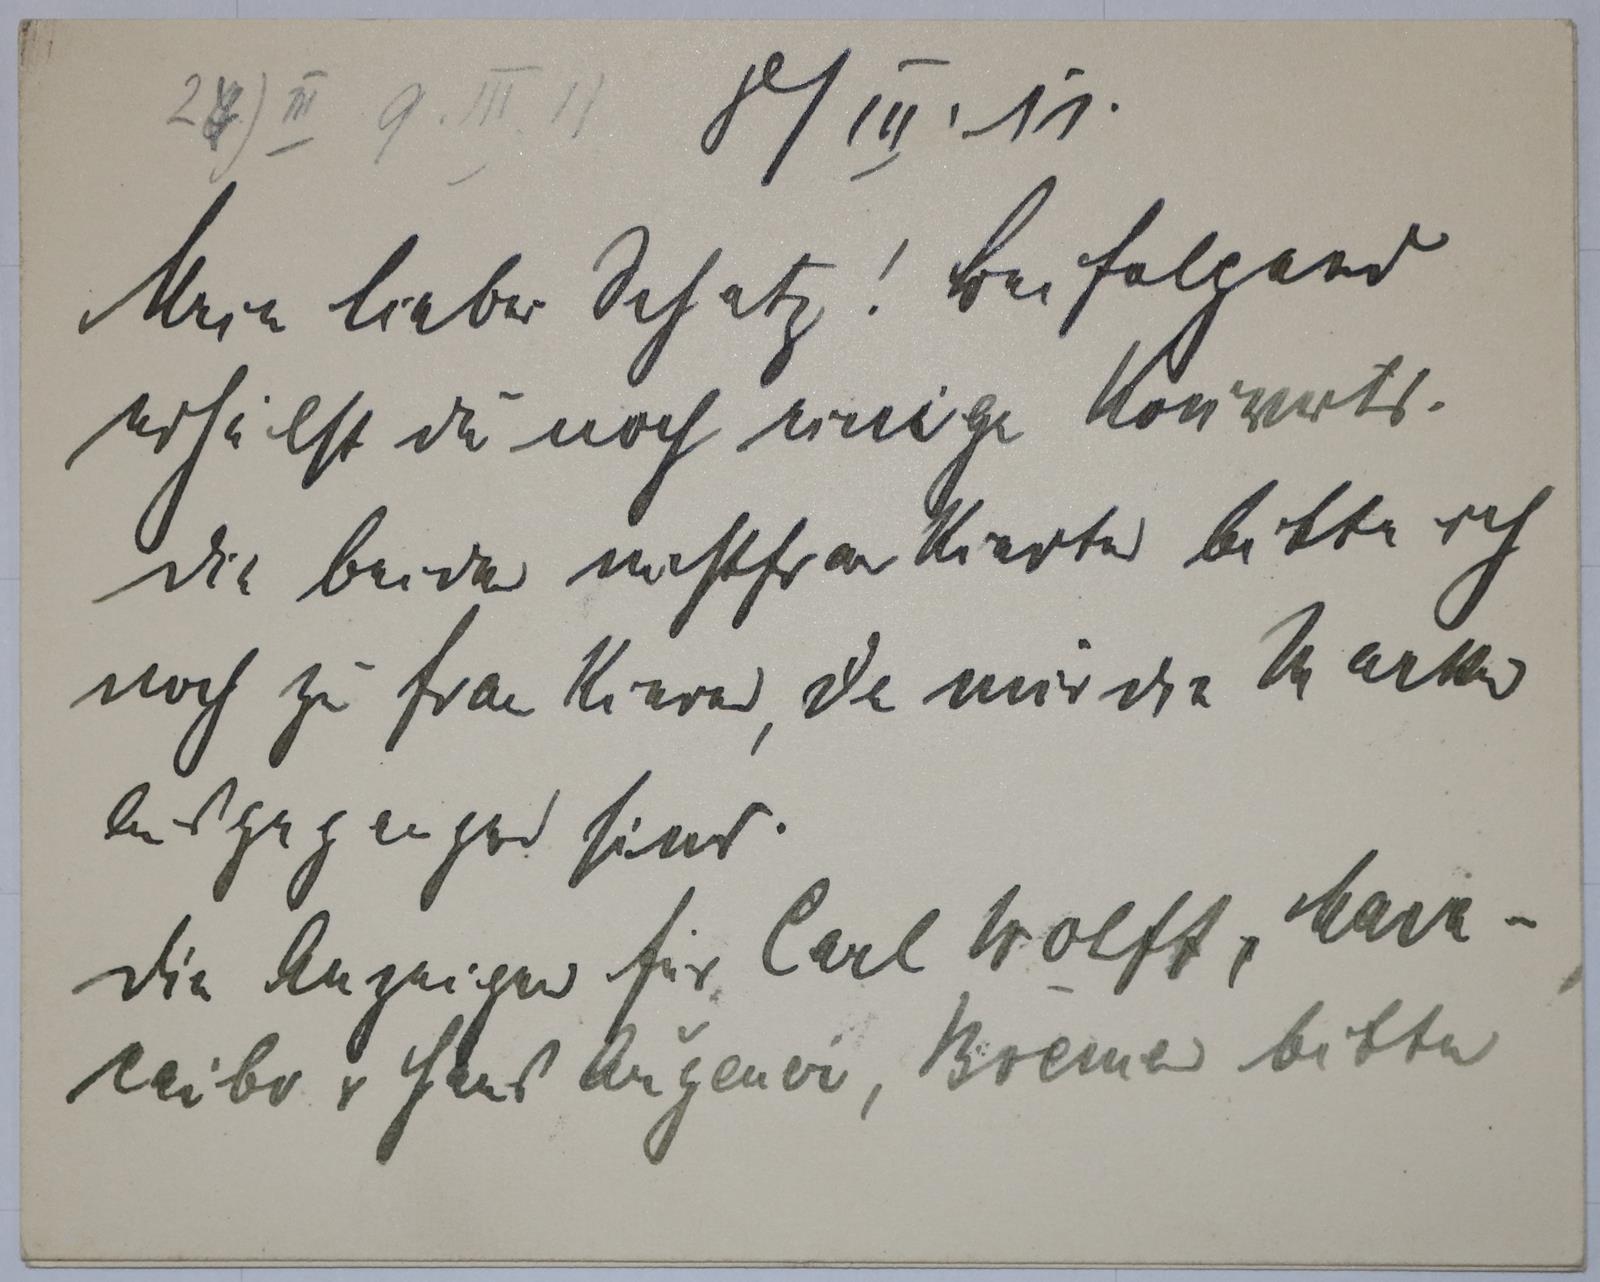 9. III. 11
8/III. 11.
Mein lieber Schatz! Beifolgend
erhälst du noch einige Konverts.
Die beiden nichtfrankierten bitte ich
noch zu frankieren, da mir die Marken
ausgegangen sind.
Die Anzeigen für Carl Wolff, Mara-
caibo & Hans Bremen bitte